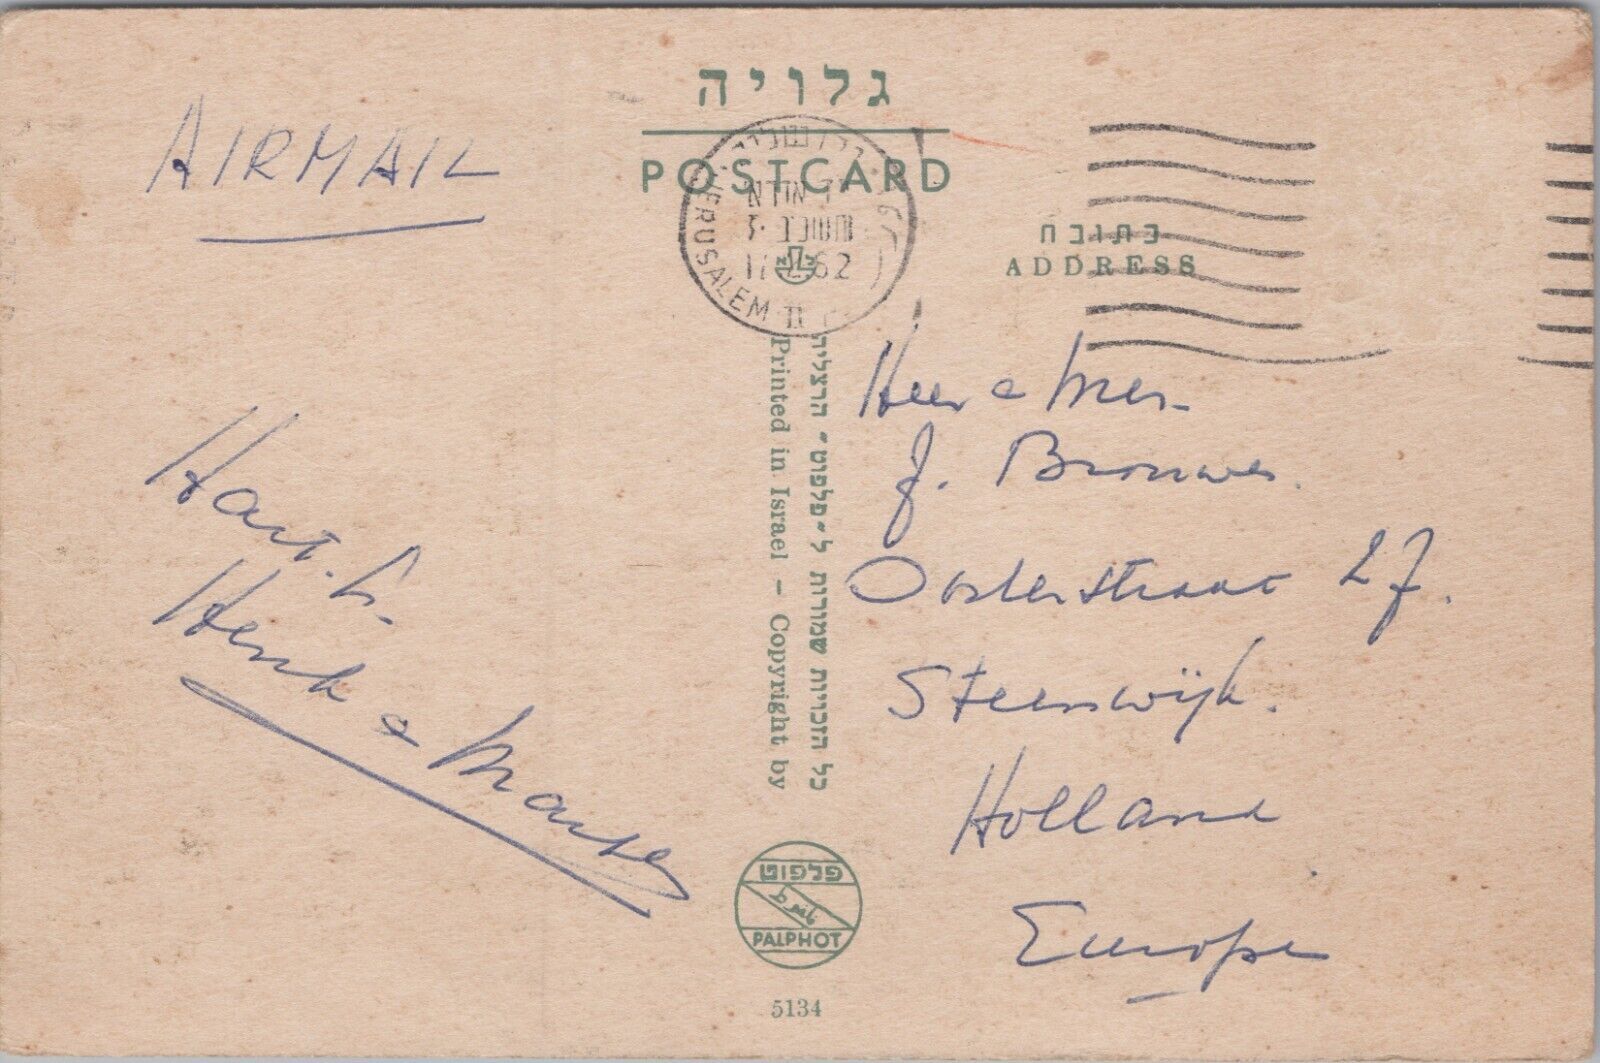 גלויה
POSTCARD
AIRMAIL
JERUSALEM
כתובת
ADDRESS
Heer e Mevr.
J. Brouwer.
Oosterstraat 27.
Steenwijk.
Holland
Europe
Hart. Gr.
Henk e
כל הזכויות שמורות ל״פלפוט״ הרצליה
Printed in Israel - Copyright by
פלפוט
PALPHOT
5134